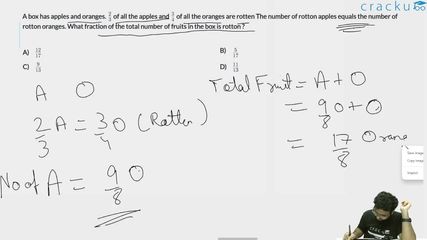 cracku
A box has apples and oranges. 2/3 of all the apples and 3/4 of all the oranges are rotten The number of rotton apples equals the number of
rotton oranges. What fraction of the total number of fruits in the box is rotton?
A) 12/17
B) 5/17
C) 9/13
D) 11/13
A O
2/3 A = 3/4 O (Rotten)
No of A = 9/8 O
Total Fruit = A + O
= 9/8 O + O
= 17/8 Orang
Save image
Copy image